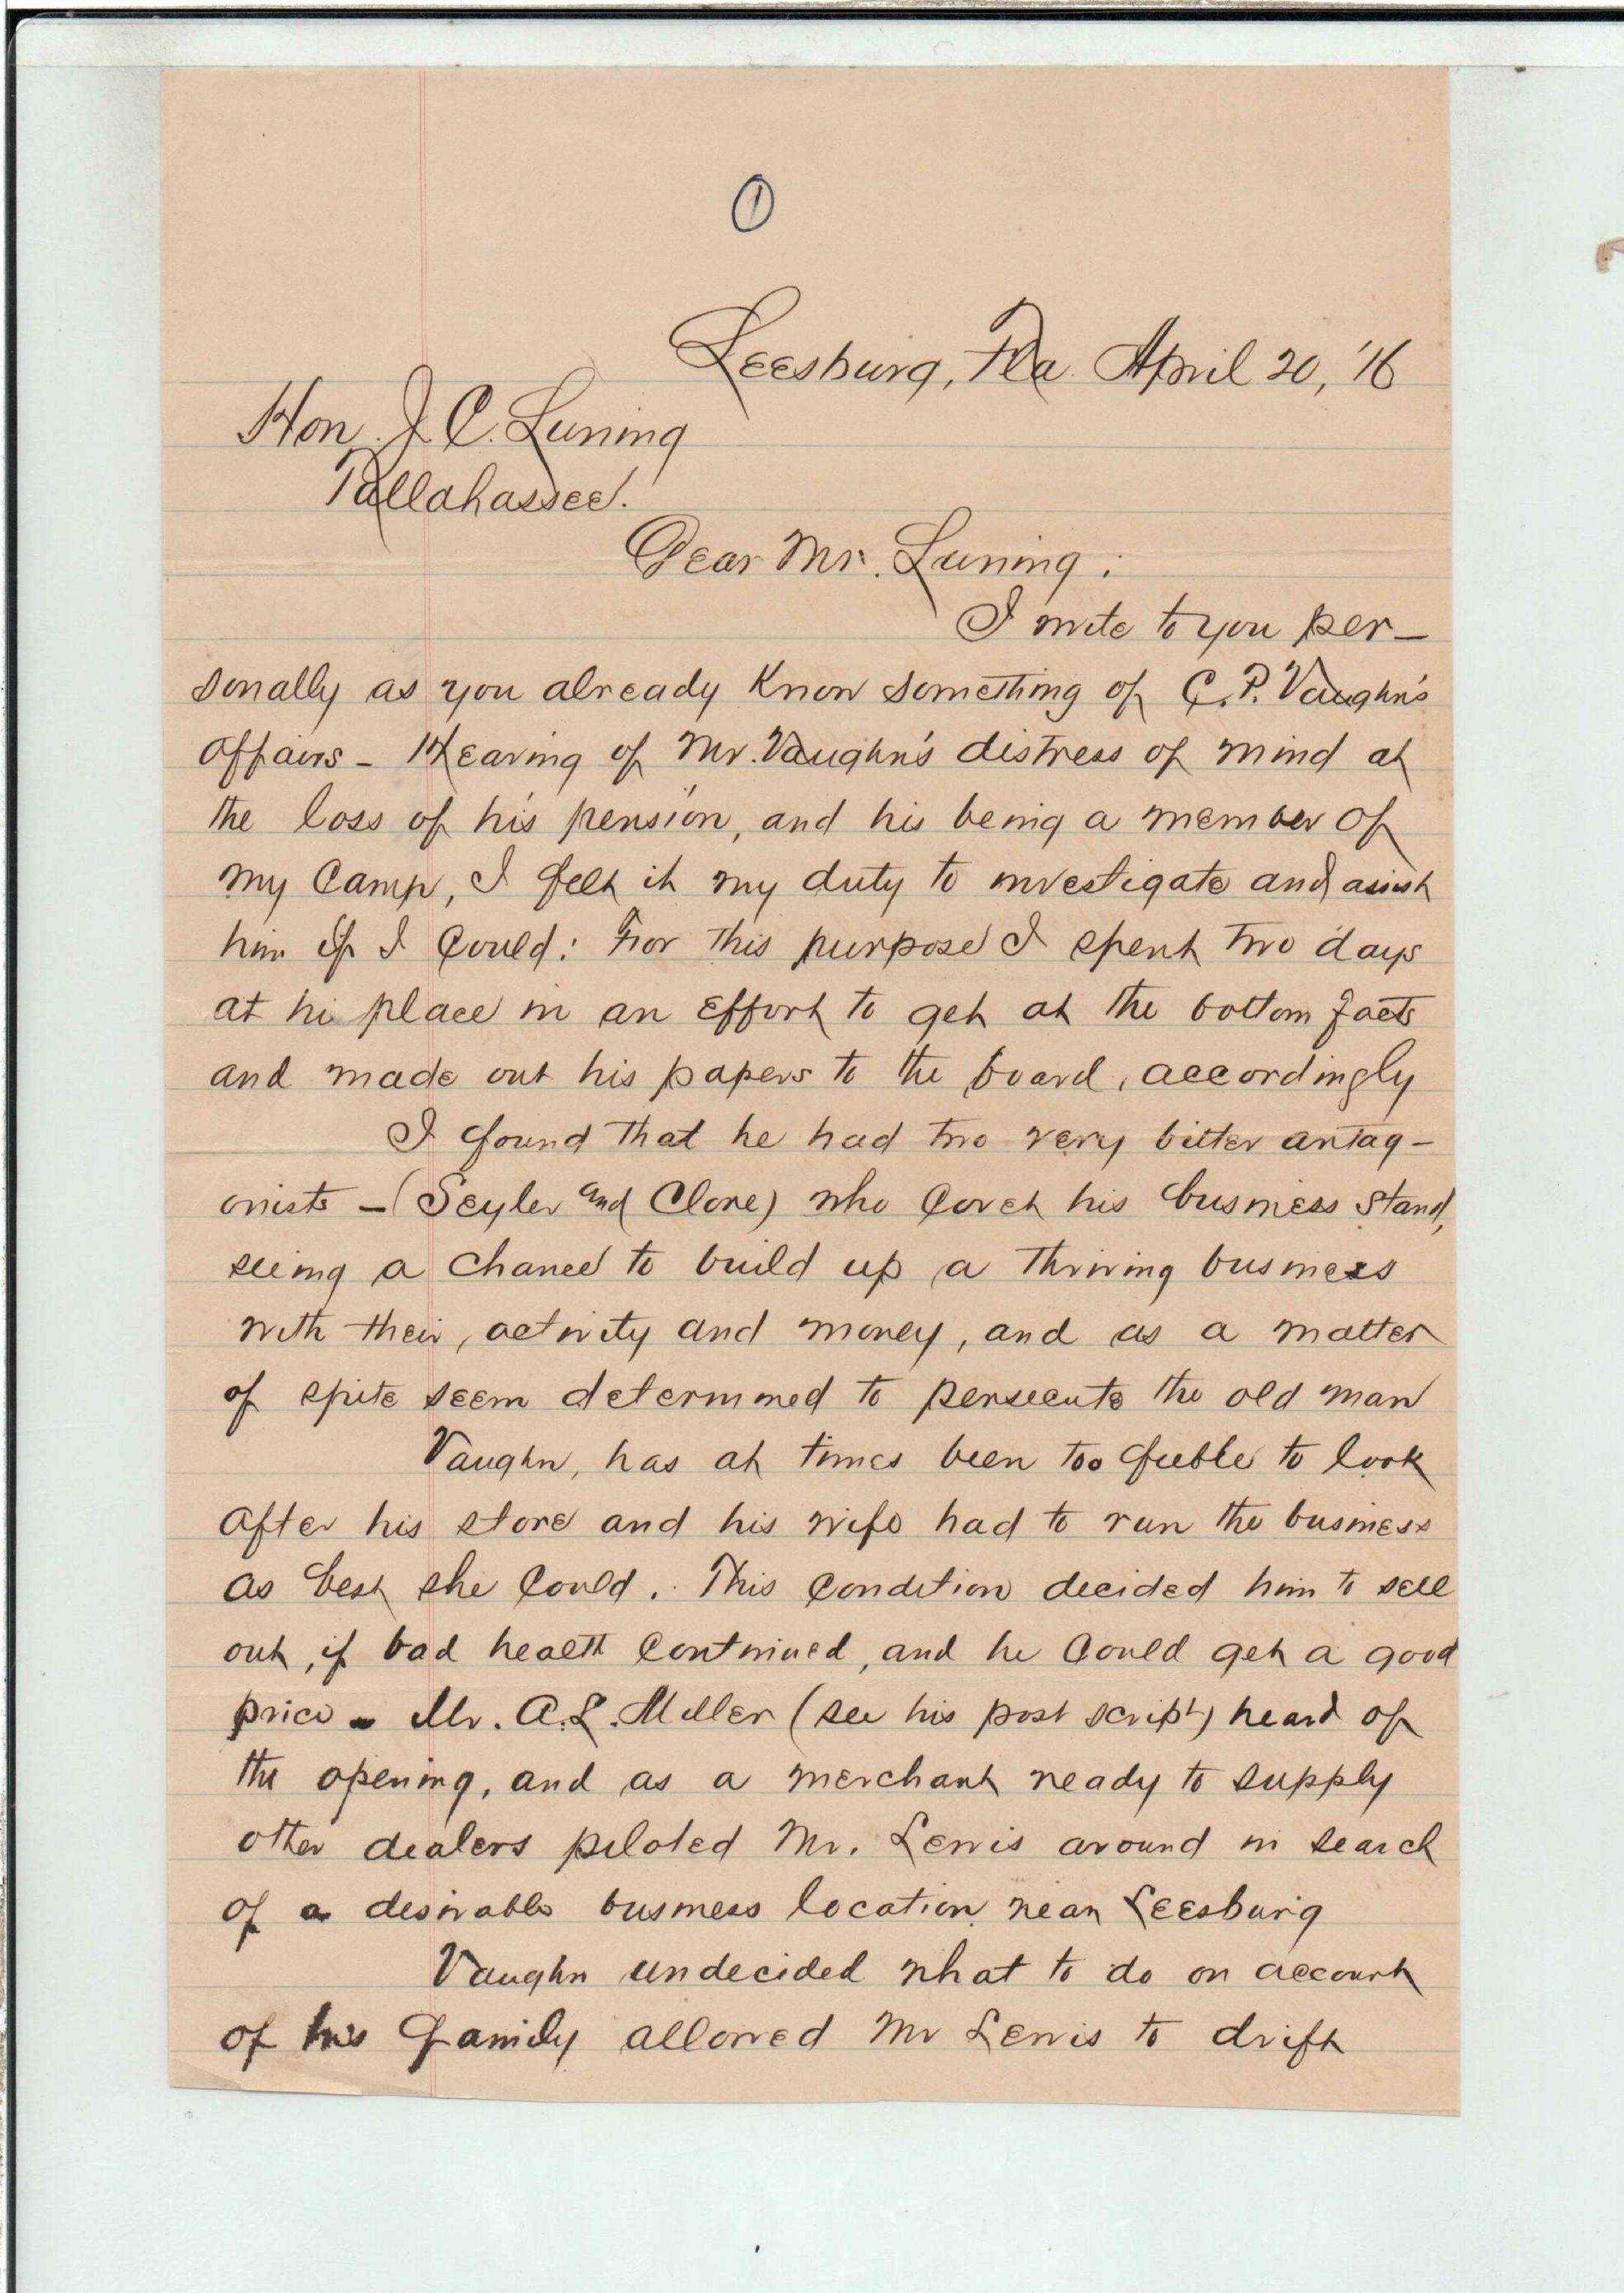 1
Leesburg, Fla. April 20, '16
Hon. J. C. Luning
Tallahassee.
Dear Mr. Luning:
I write to you per-
sonally as you already know something of C. P. Vaughn's
affairs - Hearing of Mr. Vaughn's distress of mind at
the loss of his pension, and his being a member of
my Camp, I felt it my duty to investigate and assist
him if I could: For this purpose I spent two days
at his place in an effort to get at the bottom facts
and made out his papers to the board, accordingly
I found that he had two very bitter antag-
onists - (Seyler and Clore) who covet his business stand,
seeing a chance to build up a thriving business
with their, activity and money, and as a matter
of spite seem determined to persecute the old man
Vaughn, has at times been too feeble to look
after his store and his wife had to run the business
as best she could. This condition decided him to sell
out, if bad health continued, and he could get a good
price - Mr. A. L. Miller (see his post script) heard of
the opening, and as a merchant ready to supply
other dealers piloted Mr. Lewis around in search
of a desirable business location near Leesburg
Vaughn undecided what to do on account
of his family allowed Mr Lewis to drift